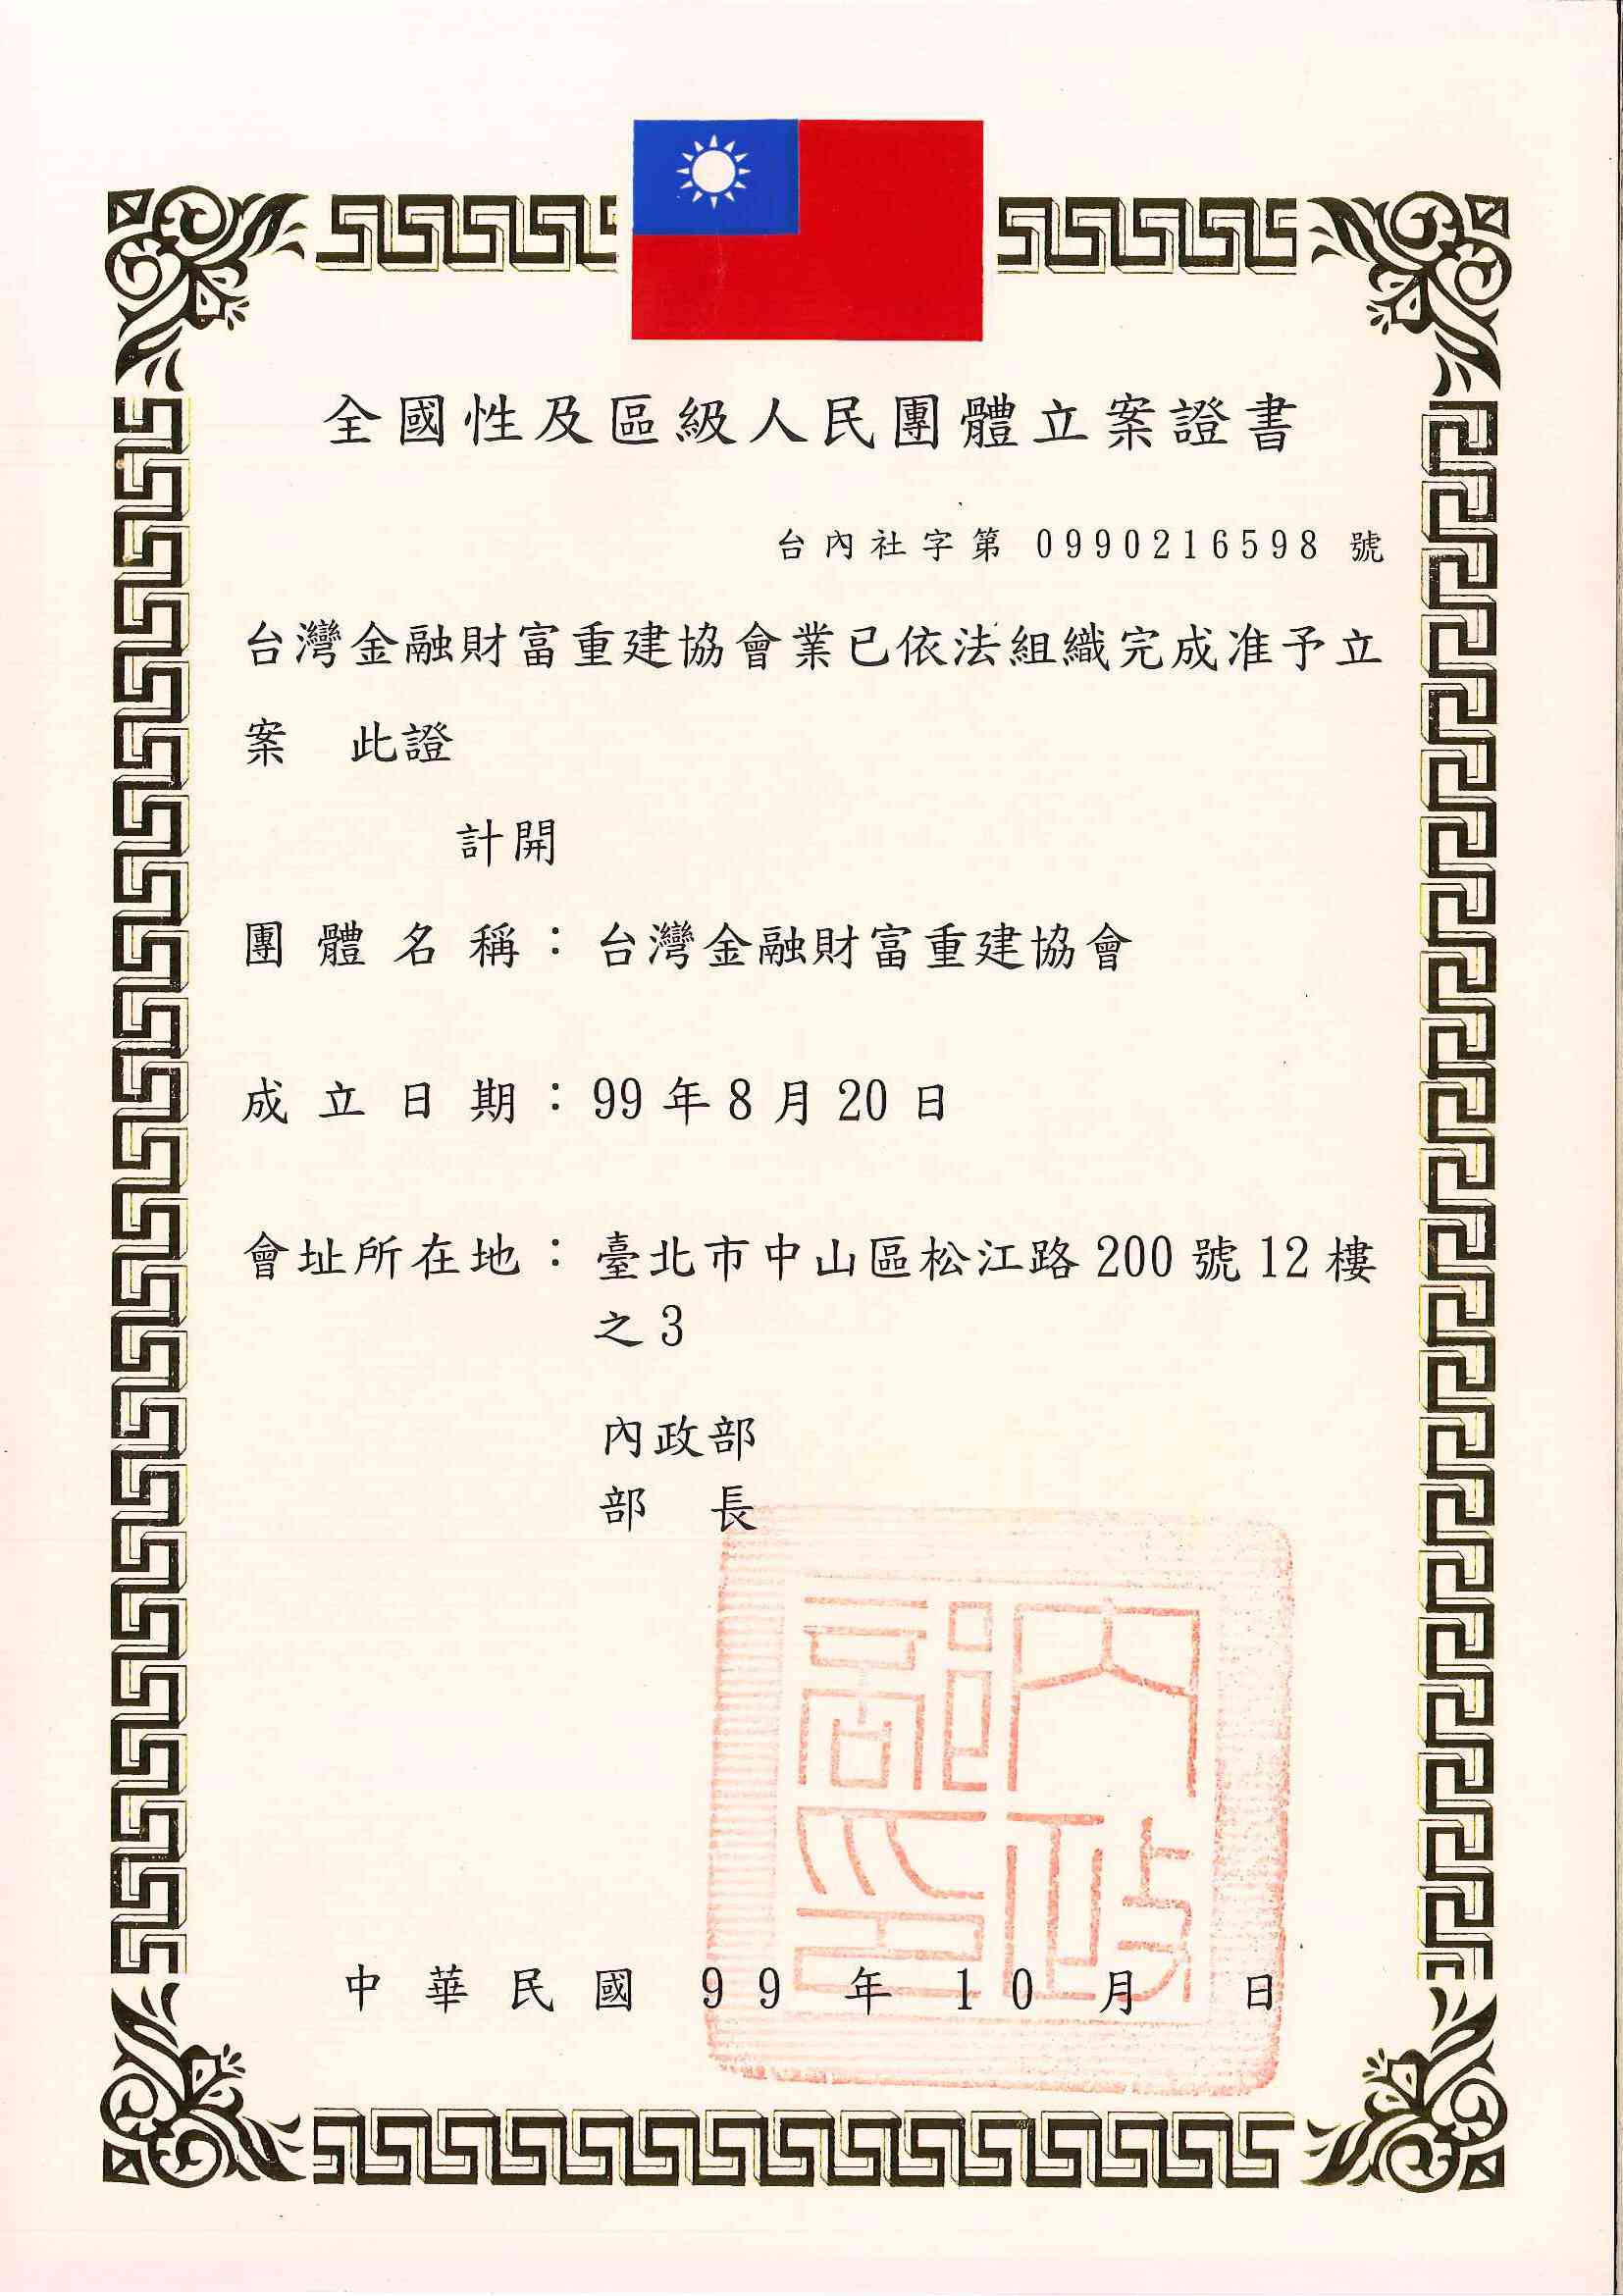 全國性及區級人民團體立案證書
台內社字第 0990216598 號
台灣金融財富重建協會業已依法組織完成准予立
案　此證
計開
團體名稱：台灣金融財富重建協會
成立日期：99年8月20日
會址所在地：臺北市中山區松江路200號12樓
之3
內政部
部　長
內政部印
中華民國 99 年 10 月　日